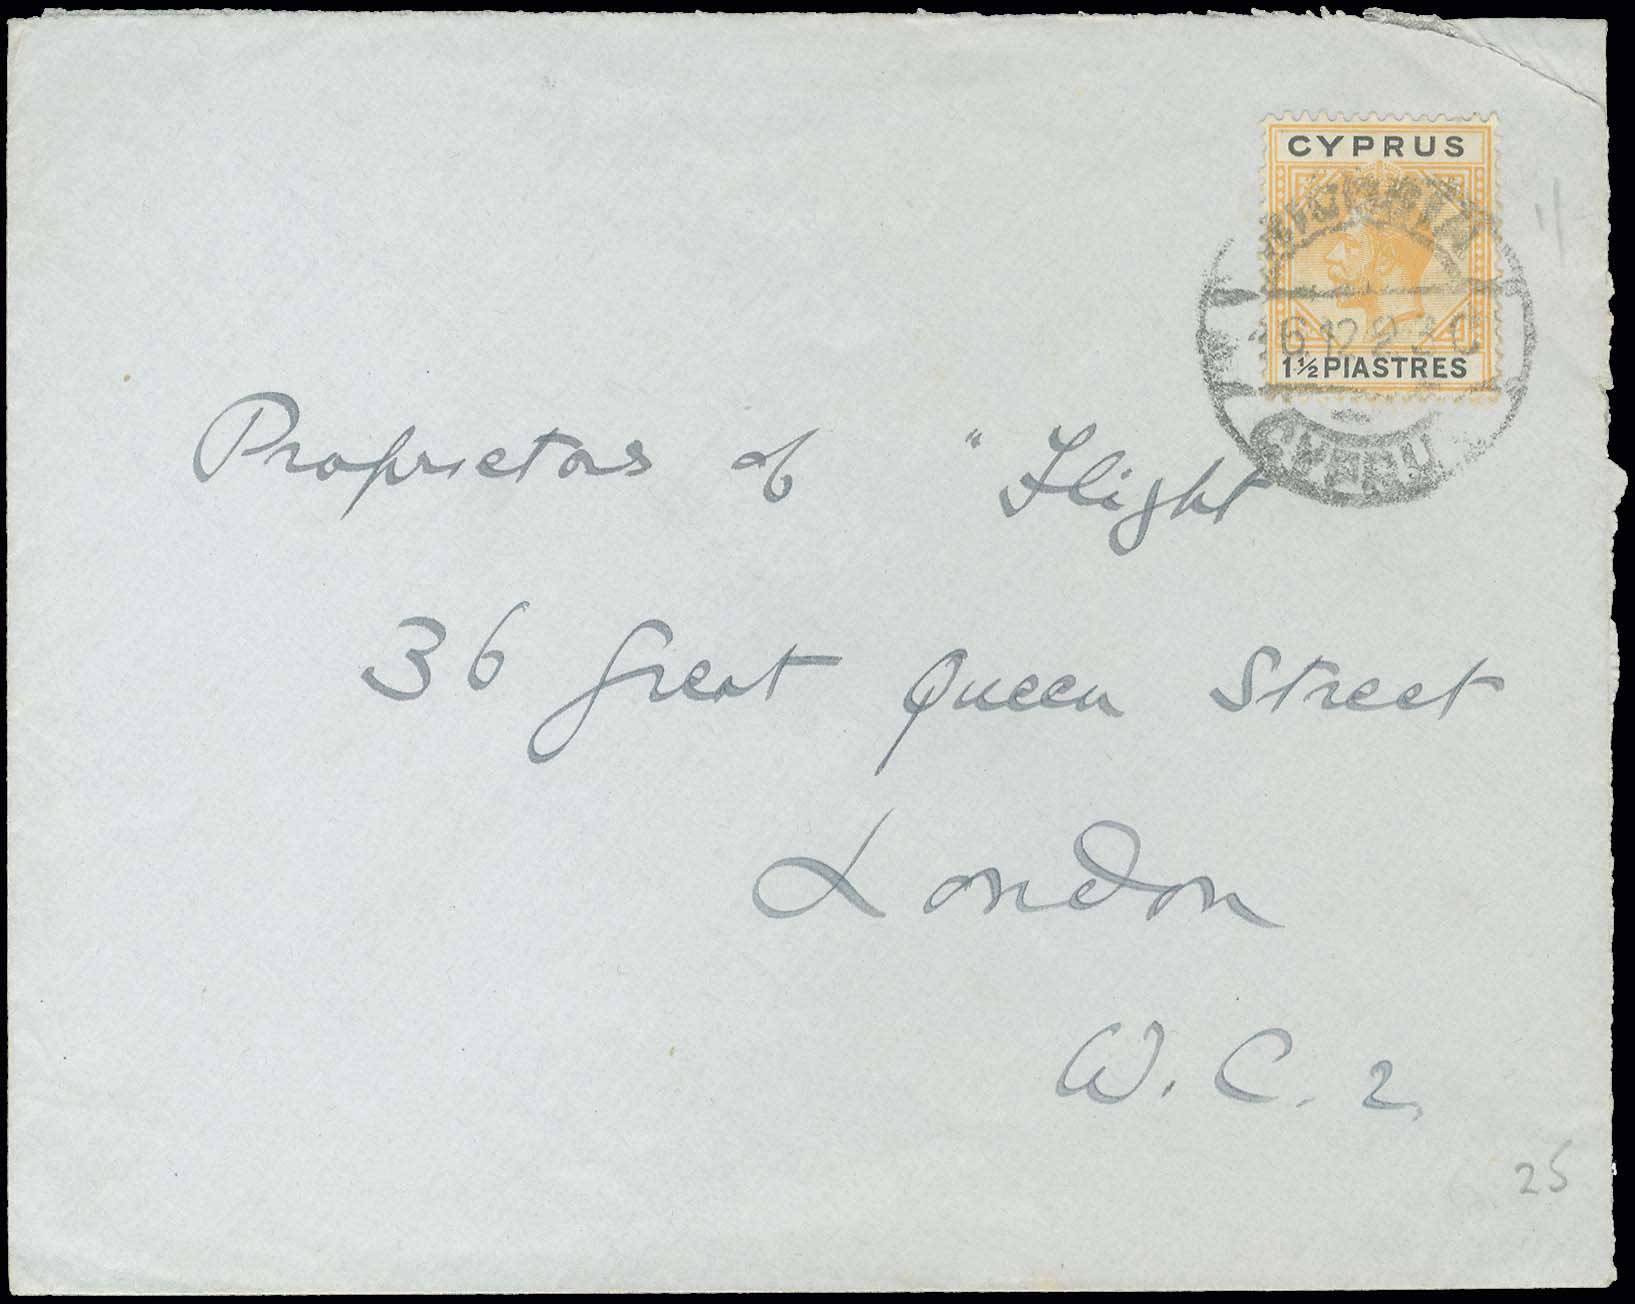 CYPRUS
1½ PIASTRES
Proprietors of "Flight
36 Great Queen Street
London
W.C.2.
25